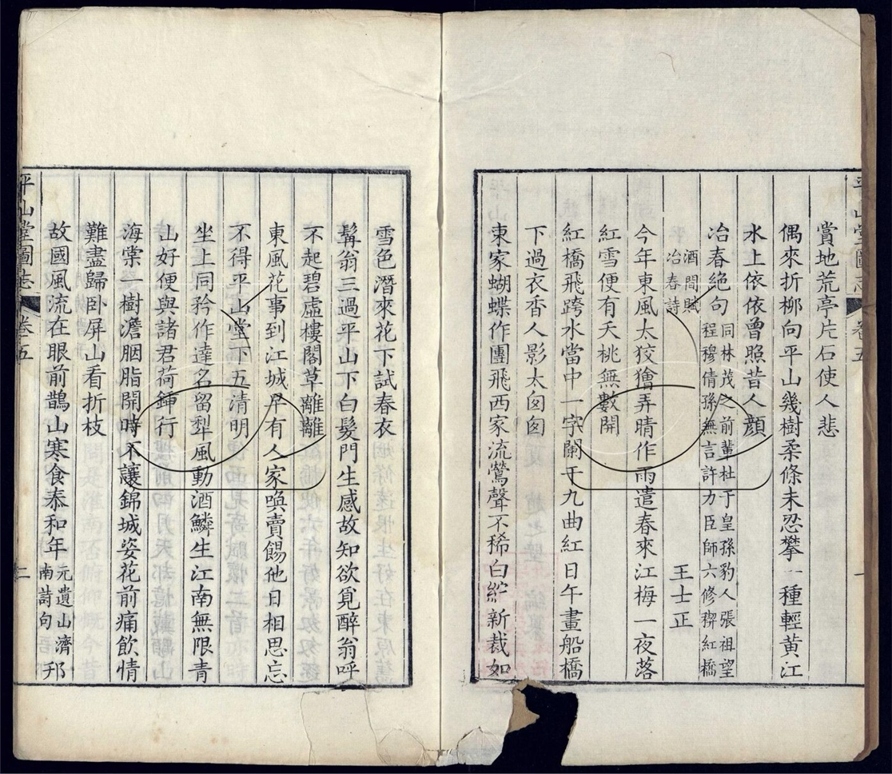 賞地荒亭片石使人悲
偶來折柳向平山幾樹柔條未忍攀一種輕黃江
水上依依曾照昔人顏
冶春絕句
同林茂之前輩杜于皇孫豹人張祖望
程穆倩孫無言許力臣師六修禊紅橋
酒間賦
冶春詩
王士正
今年東風太狡獪弄晴作雨遣春來江梅一夜落
紅雪便有夭桃無數開
紅橋飛跨水當中一字闌干九曲紅日午畫船橋
下過衣香人影太匆匆
東家蝴蝶作團飛西家流鶯聲不稀白紵新裁如
平山堂圖志
卷五
一
雪色潛來花下試春衣
髯翁三過平山下白髮門生感故知欲覓醉翁呼
不起碧虛樓閣草離離
東風花事到江城早有人家喚賣餳他日相思忘
不得平山堂下五清明
坐上同矜作達名留犁風動酒鱗生江南無限青
山好便與諸君荷鍤行
海棠一樹澹胭脂開時不讓錦城姿花前痛飲情
難盡歸臥屏山看折枝
故國風流在眼前鵲山寒食泰和年
元遺山濟
南詩句
邗
平山堂圖志
卷五
二